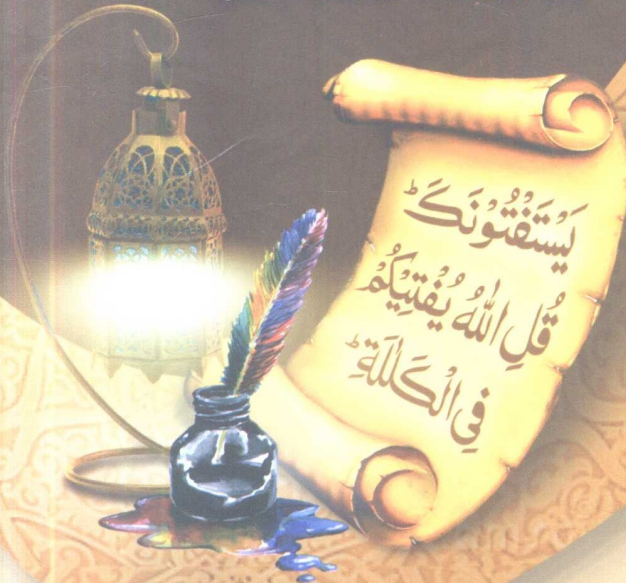 يَسْتَفْتُوْنَكَ ؕ
قُلِ اللّٰهُ يُفْتِيْكُمْ
فِي الْكَلٰلَةِ ؕ